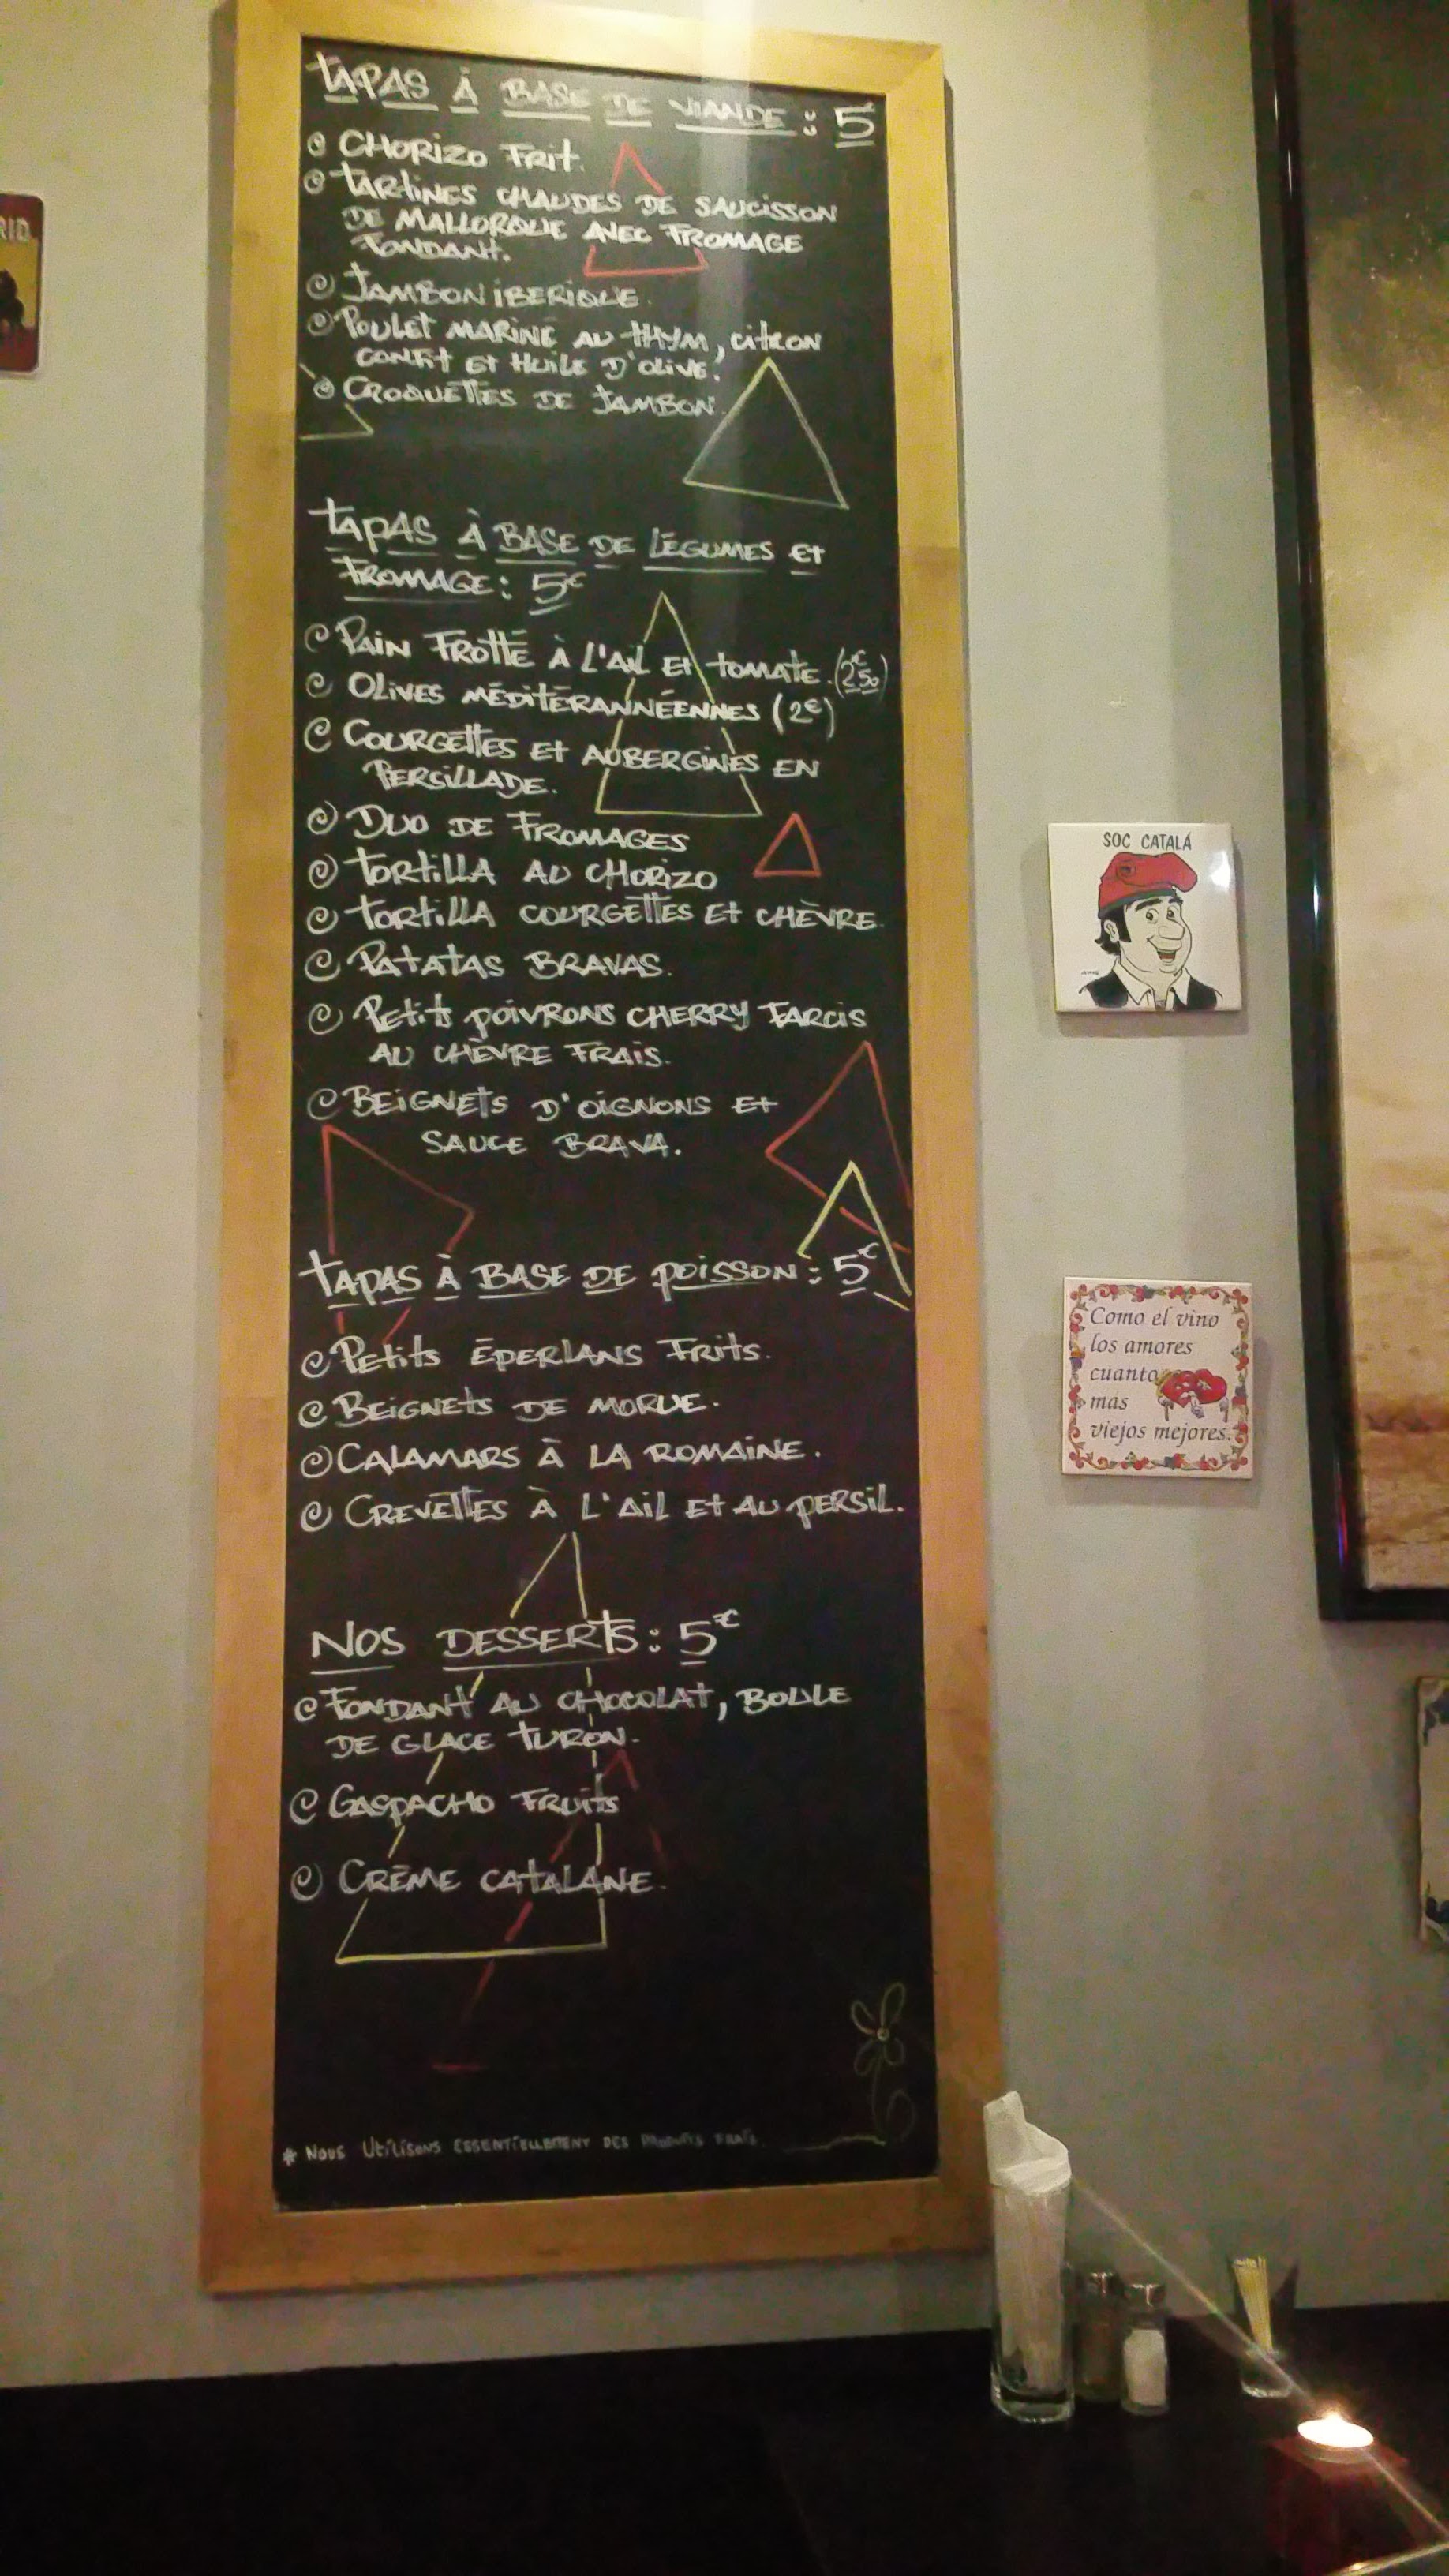 TAPAS À BASE DE VIANDE : 5€
CHORIZO FRIT.
TARTINES CHAUDES DE SAUCISSON
DE MALLORQUE AVEC FROMAGE
FONDANT.
JAMBON IBERIQUE.
POULET MARINÉ AU THYM, CITRON
CONFIT ET HUILE D'OLIVE.
CROQUETTES DE JAMBON.
TAPAS À BASE DE LÉGUMES ET
FROMAGE : 5€
PAIN FROTTÉ À L'AIL ET TOMATE. (2€50)
OLIVES MÉDITÉRANNÉENNES (2€)
COURGETTES ET AUBERGINES EN
PERSILLADE.
DUO DE FROMAGES
TORTILLA AU CHORIZO
TORTILLA COURGETTES ET CHÈVRE.
PATATAS BRAVAS.
PETITS POIVRONS CHERRY FARCIS
AU CHÈVRE FRAIS.
BEIGNETS D'OIGNONS ET
SAUCE BRAVA.
TAPAS À BASE DE POISSON : 5€
PETITS ÉPERLANS FRITS.
BEIGNETS DE MORUE.
CALAMARS À LA ROMAINE.
CREVETTES À L'AIL ET AU PERSIL.
NOS DESSERTS : 5€
FONDANT AU CHOCOLAT, BOULE
DE GLACE TURON.
GASPACHO FRUITS
CRÈME CATALANE.
* NOUS UTILISONS ESSENTIELLEMENT DES PRODUITS FRAIS.
SOC CATALÁ
Como el vino
los amores
cuanto
mas
viejos mejores.